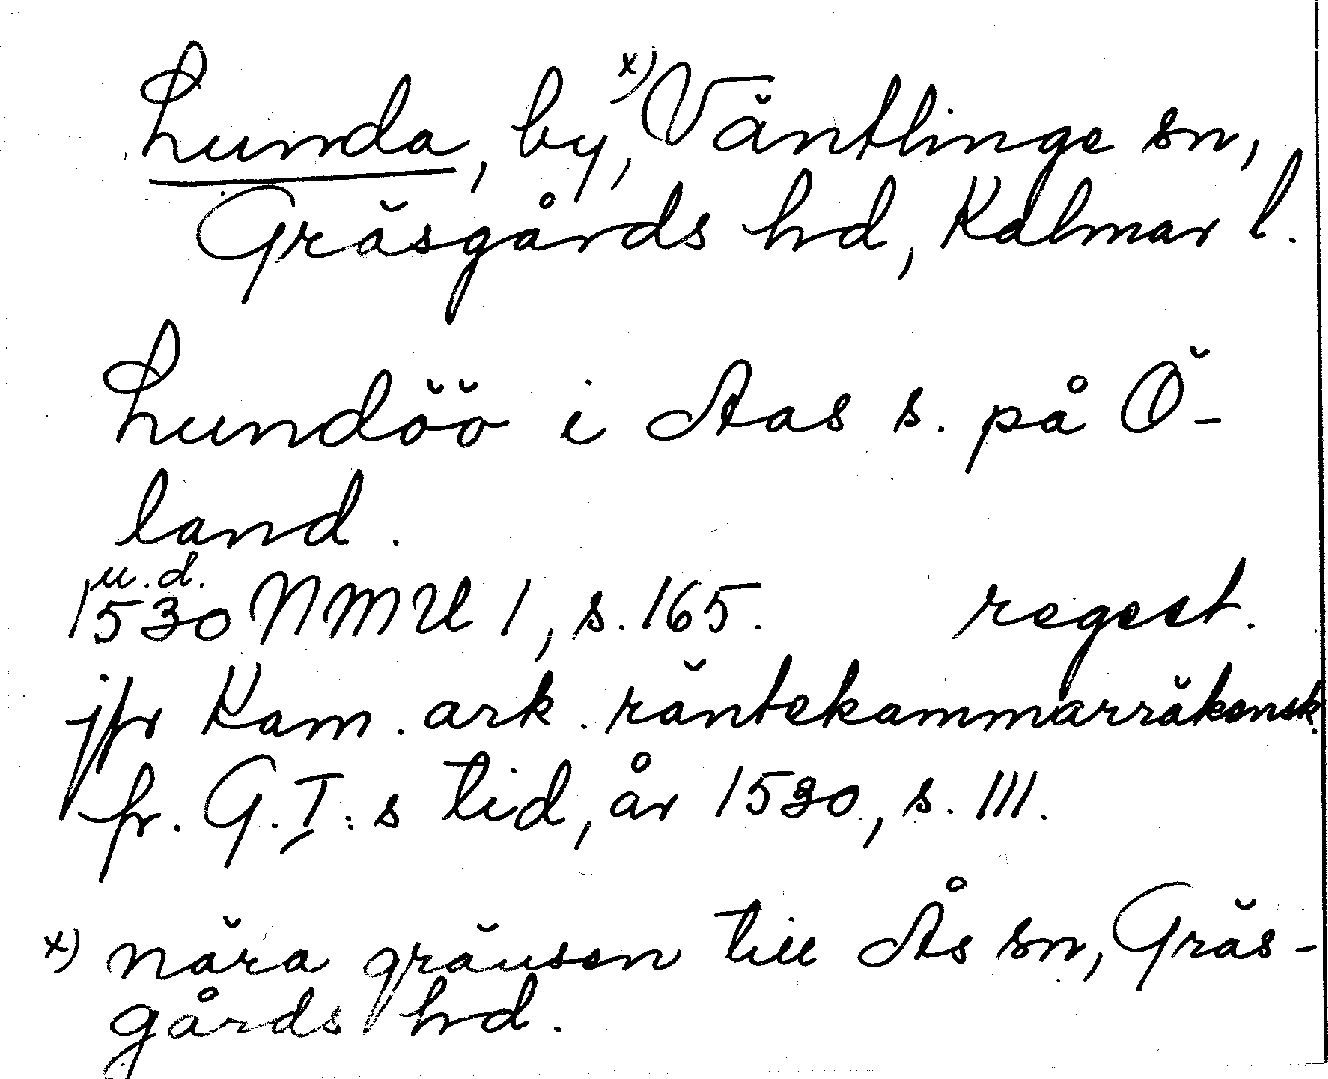 Lunda, by, x) Väntlinge sn,
Gräsgårds hrd, Kalmar l.
Lundöö i Aas s. på Ö-
land.
u.d.
1530 NMU 1, s. 165. regest.
jfr Kam. ark. räntekammarräkensk.
fr. G. I:s tid, år 1530, s. 111.
x) nära gränsen till Ås sn, Gräs-
gårds hrd.